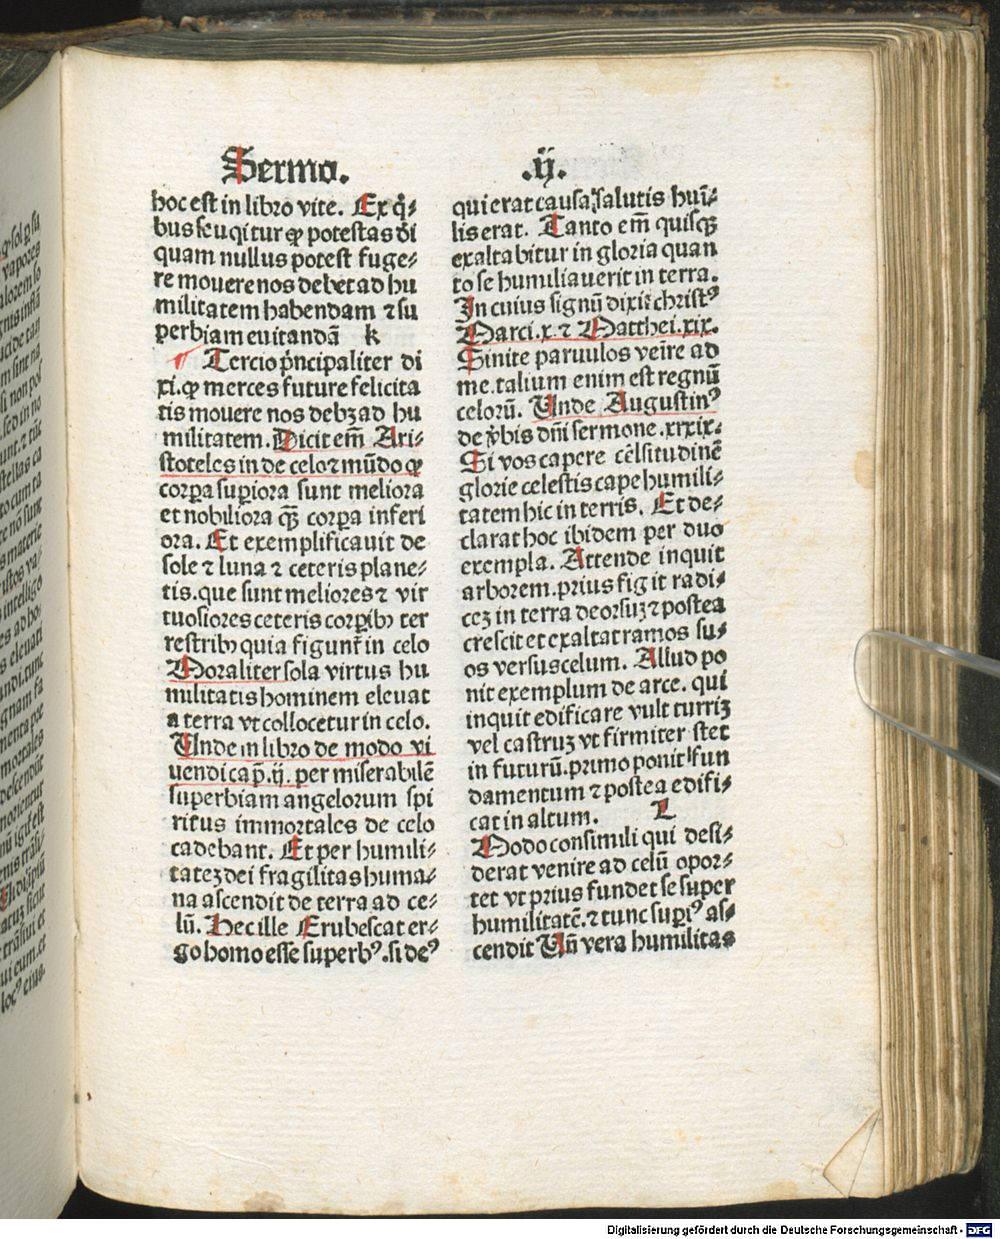 Sermo.
hoc est in libro vite. Ex q̇⸗
bus seuqitur ꝙ potestas di
quam nullus potest fuge⸗
re mouere nos debet ad hu
militatem habendam ⁊ su
perbiam euitandā k
Tercio p̄ncipaliter di
xi. ꝙ merces future felicita
tis mouere nos debꝫ ad hu
militatem. Dicit em̄ Ari⸗
stoteles in de celo ⁊ mūdo ꝙ
corꝑa suꝑiora sunt meliora
et nobiliora qȝ̄ corꝑa inferi
ora. Et exemplificauit de
sole ⁊ luna ⁊ ceteris plane⸗
tis. que sunt meliores ⁊ vir
tuosiores ceteris corꝑibꝫ ter
restribꝫ quia figunt᷑ in celo
Moraliter sola virtus hu
militatis hominem eleuat
a terra vt collocetur in celo.
Unde in libro de modo vi
uendi cap̄. ij. per miserabilē
superbiam angelorum spi
ritus immortales de celo
cadebant. Et per humili⸗
tateꝫ dei fragilitas huma⸗
na ascendit de terra ad ce⸗
lū. Hec ille Erubescat er⸗
go homo esse superbꝰ. si deꝰ
.ij.
qui erat causa salutis humi̅⸗
lis erat. Tanto em̄ quisqȝ
exaltabitur in gloria quan
to se humiliauerit in terra.
In cuius signū dixit christꝰ
Marci. x. ⁊ Matthei. xix.
Sinite paruulos veire ad
me. talium enim est regnū
celorū. Unde Augustinꝰ
de v̄bis dn̄i sermone. xxxix.
Si vos capere celsitudinē
glorie celestis cape humili⸗
tatem hic in terris. Et de⸗
clarat hoc ibidem per duo
exempla. Attende inquit
arborem. prius figit radi⸗
ceꝫ in terra deorsuꝫ ⁊ postea
crescit et exaltat ramos su⸗
os versus celum. Aliud po
nit exemplum de arce. qui
inquit edificare vult turriꝫ
vel castruꝫ vt firmiter stet
in futurū. primo ponit fun
damentum ⁊ postea edifi⸗
cat in altum. L
Modo consimili qui desi⸗
derat venire ad celū opor⸗
tet vt prius fundet se super
humilitatē. ⁊ tunc suꝑiꝰ as⸗
cendit Un̄ vera humilitas
Digitalisierung gefördert durch die Deutsche Forschungsgemeinschaft - DFG